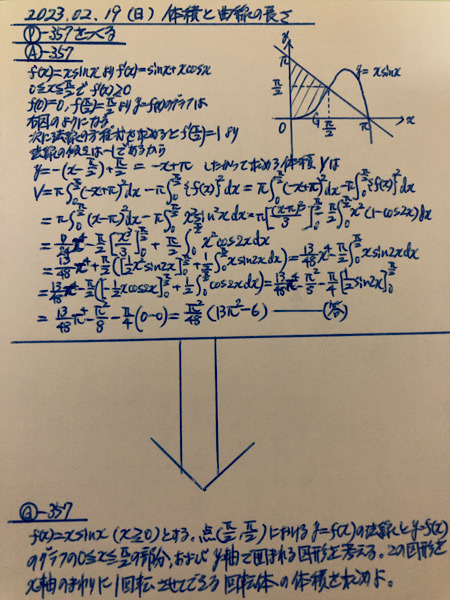 2023.02.19(日)体積と曲線の長さ
Ⓟ-357をつくる
Ⓐ-357
f(x)=xsinxよりf'(x)=sinx+xcosx
0≦x≦π/2でf'(x)≧0
f(0)=0, f(π/2)=π/2よりy=f(x)のグラフは
右図のようになる
次に法線の方程式を求めるとf'(π/2)=1より
法線の傾きは-1であるから
y=-(x-π/2)+π/2 = -x+π したがって求める体積Vは
V=π∫₀^{π/2}(-x+π)²dx-π∫₀^{π/2}{f(x)}²dx=π∫₀^{π/2}(-x+π)²dx-π∫₀^{π/2}{f(x)}²dx
=π∫₀^{π/2}(x-π)²dx-π∫₀^{π/2}x²sin²xdx=π[(x-π)³/3]₀^{π/2}-π/2∫₀^{π/2}x²(1-cos2x)dx
=7/24π⁴-π/2[x³/3]₀^{π/2}+π/2∫₀^{π/2}x²cos2xdx
=13/48π⁴+π/2([1/2x²sin2x]₀^{π/2}-∫₀^{π/2}xsin2xdx)=13/48π⁴-π/2∫₀^{π/2}xsin2xdx
=13/48π⁴-π/2([-1/2xcos2x]₀^{π/2}+1/2∫₀^{π/2}cos2xdx)=13/48π⁴-π²/8-π/4[1/2sin2x]₀^{π/2}
=13/48π⁴-π²/8-π/4(0-0)=π²/48(13π²-6) (答)
y
π
y=xsinx
π/2
0
π/2
π
x
Ⓠ-357
f(x)=xsinx (x≧0)とする. 点(π/2,π/2)におけるy=f(x)の法線とy=f(x)
のグラフの0≦x≦π/2の部分, およびy軸で囲まれる図形を考える. この図形を
x軸のまわりに1回転させてできる回転体の体積を求めよ.